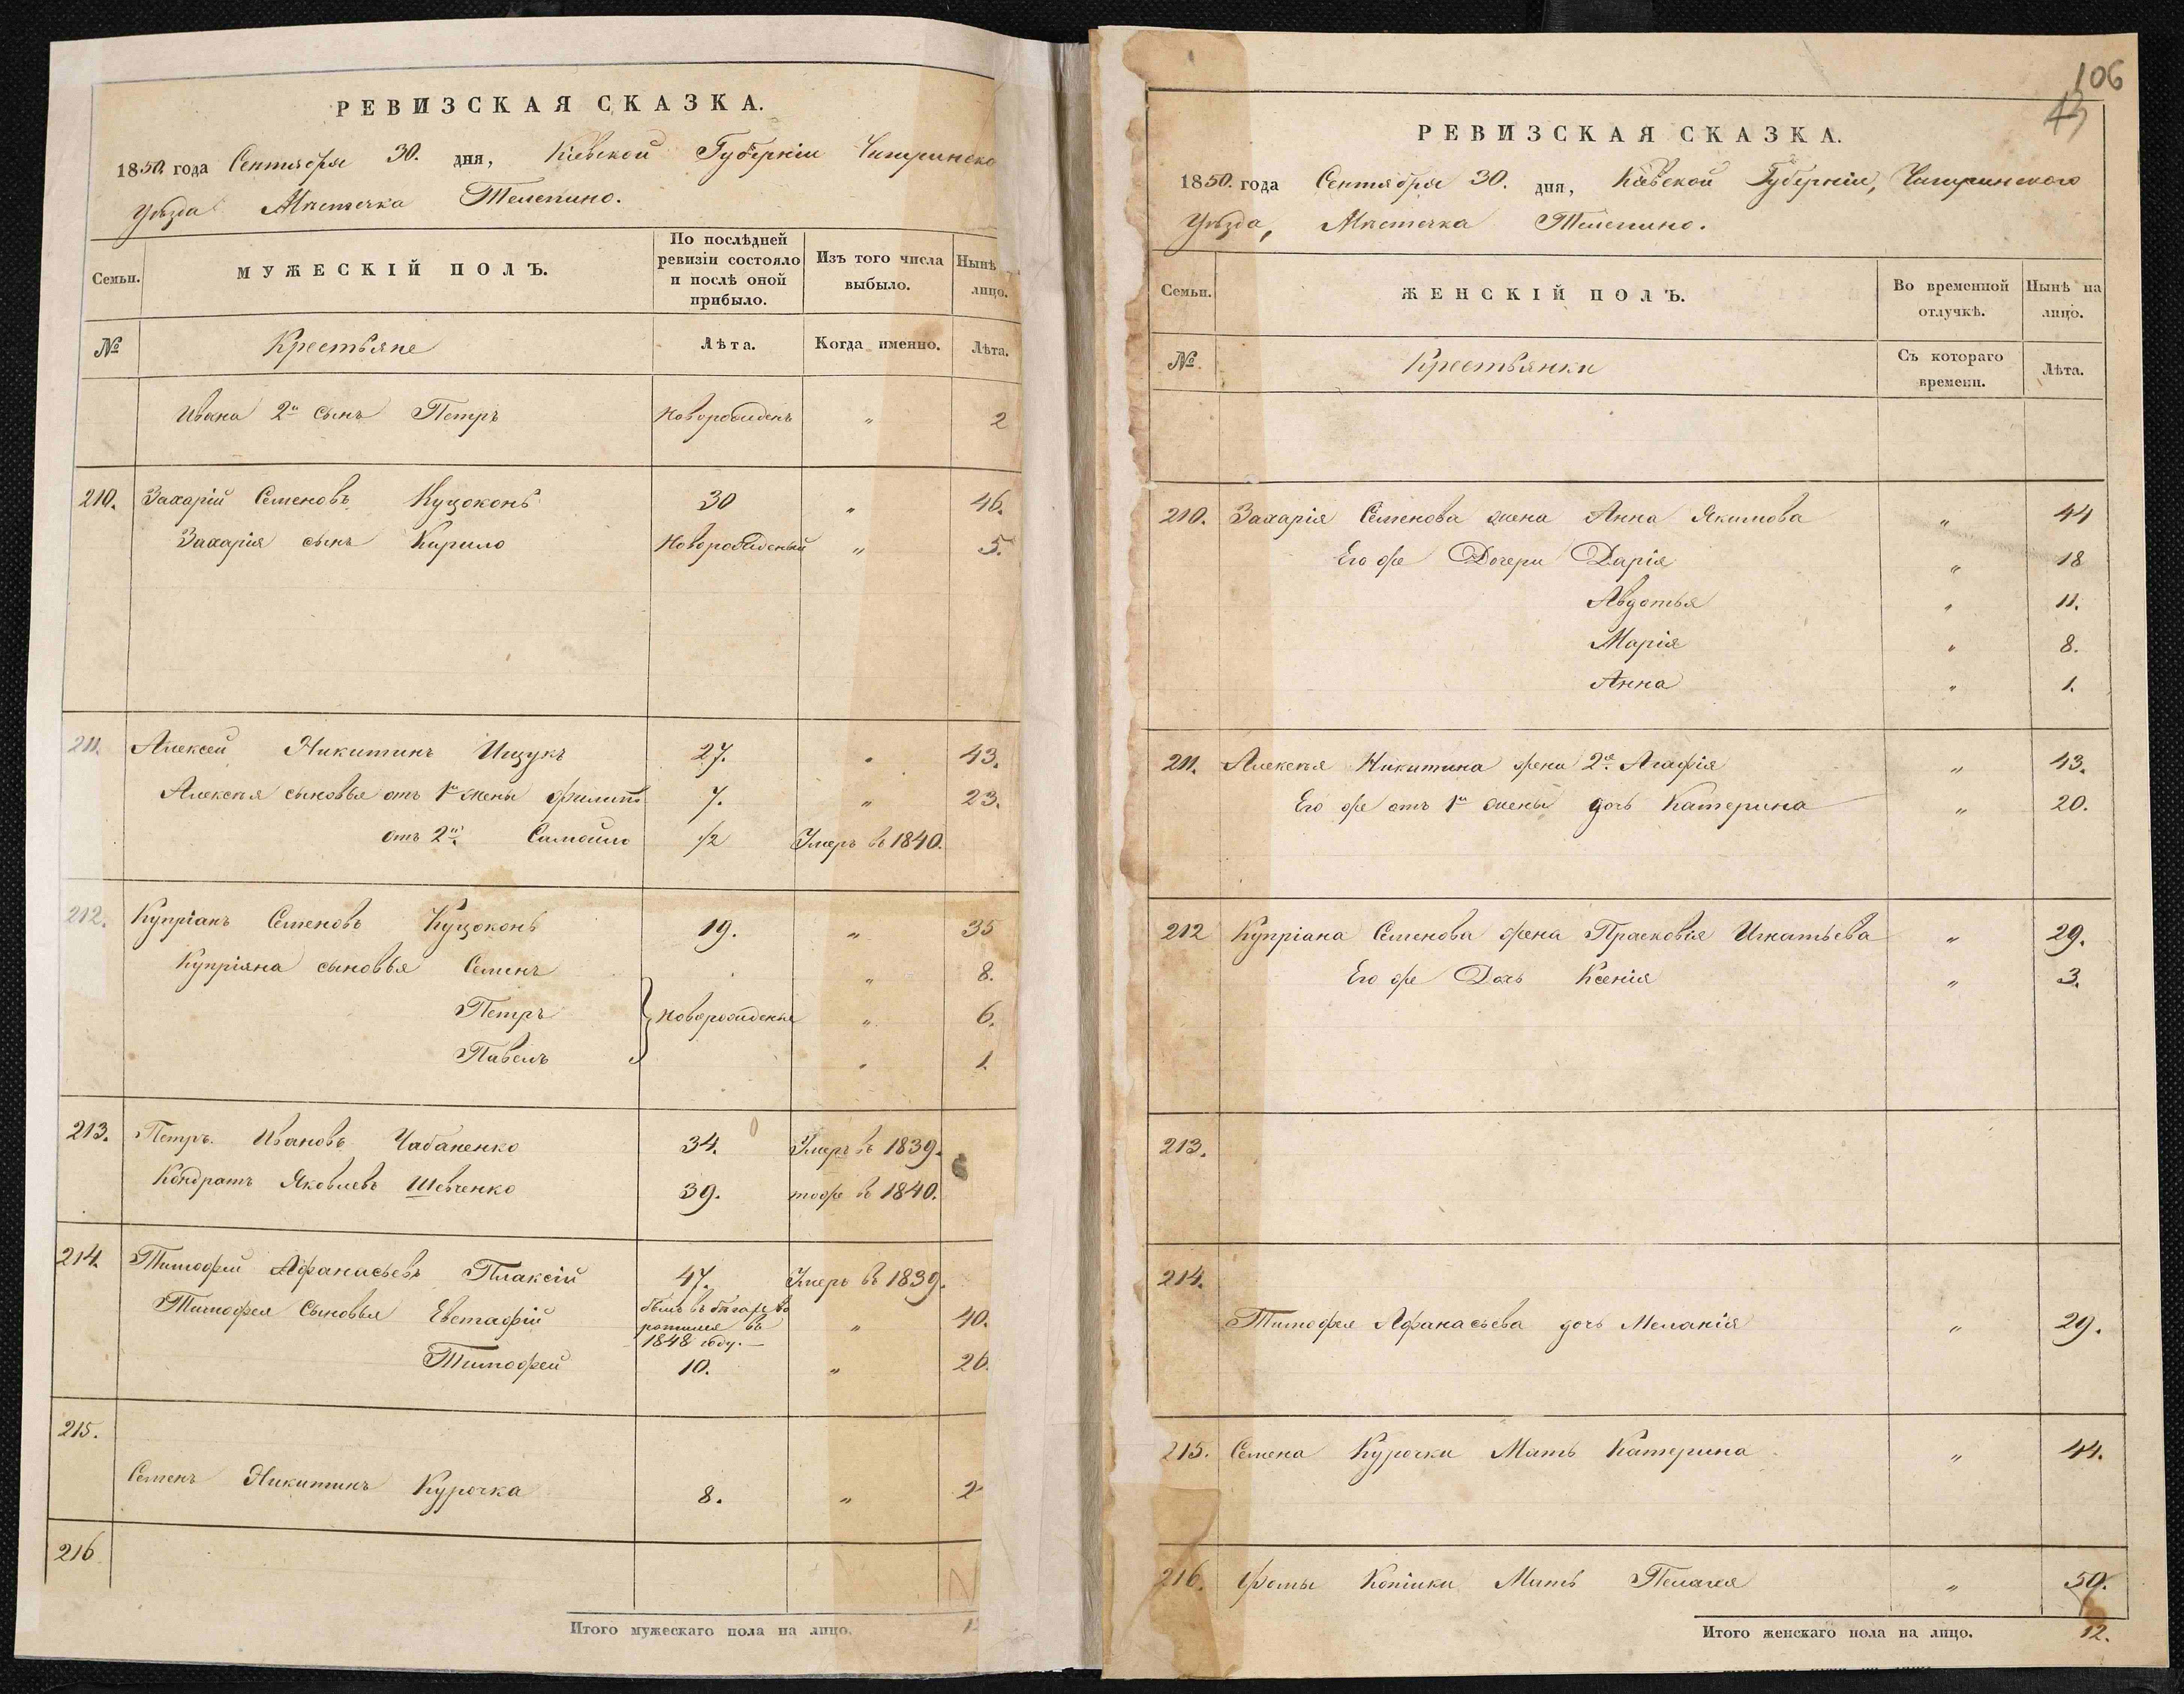 РЕВИЗСКАЯ СКАЗКА.
1850 года Сентября 30. дня, Кіевской Губерніи Чигиринско
Уѣзда Мѣстечка Телепино.
Семьи. МУЖЕСКІЙ ПОЛЪ. По послѣдней ревизіи состояло и послѣ оной прибыло. Изъ того числа выбыло. Нынѣ лицо.
№ Крестьяне Лѣта. Когда именно. Лѣта.
Ивана 2й сынъ Петръ Новорожденъ " 2
210. Захарій Семеновъ Куцоконь 30 " 46.
Захарія сынъ Кирило Новорожденый " 5.
211. Алексей Никитинъ Ищукъ 27. " 43.
Алексѣя сыновья отъ 1й жены Филипъ 7. " 23.
отъ 2й. Самойло 1/2 Умеръ въ 1840.
212. Купріанъ Семеновъ Куцоконь 19. " 35
Купріяна сыновья Семенъ " 8.
Петръ Новорожденые " 6.
Павелъ " 1.
213. Петръ Ивановъ Чабаненко 34. Умеръ въ 1839.
Кондратъ Яковлевъ Шевченко 39. тоже въ 1840.
214. Тимофей Афанасьевъ Плаксій 47. Умеръ въ 1839.
Тимофея Сыновья Евстафій былъ въ бѣгахъ во
ротился въ " 40.
1848 году.
Тимофей 10. " 26.
215.
Семенъ Никитинъ Курочка 8. " 2
216
Итого мужескаго пола на лицо.
106
РЕВИЗСКАЯ СКАЗКА.
1850. года Сентября 30. дня, Кіевской Губерніи, Чигиринскаго
Уѣзда, Мѣстечка Телепино.
Семьи. ЖЕНСКІЙ ПОЛЪ. Во временной отлучкѣ. Нынѣ на лицо.
№. Крестьянки Съ котораго времени. Лѣта.
210. Захарія Семенова жена Анна Якимова " 44
Его же Дочери Дарія " 18
Авдотья " 11.
Марія " 8.
Анна " 1.
211. Алексѣя Никитина жена 2я. Агафія " 43.
Его же отъ 1й жены дочь Катерина " 20.
212 Купріана Семенова жена Прасковья Игнатьева " 29.
Его же Дочь Ксенія " 3.
213.
214.
Тимофея Афанасьева дочь Меланія " 29.
215. Семена Курочки Мать Катерина " 44.
216. Фомы Копійки Мать Пелагея " 50.
Итого женскаго пола на лицо. 12.